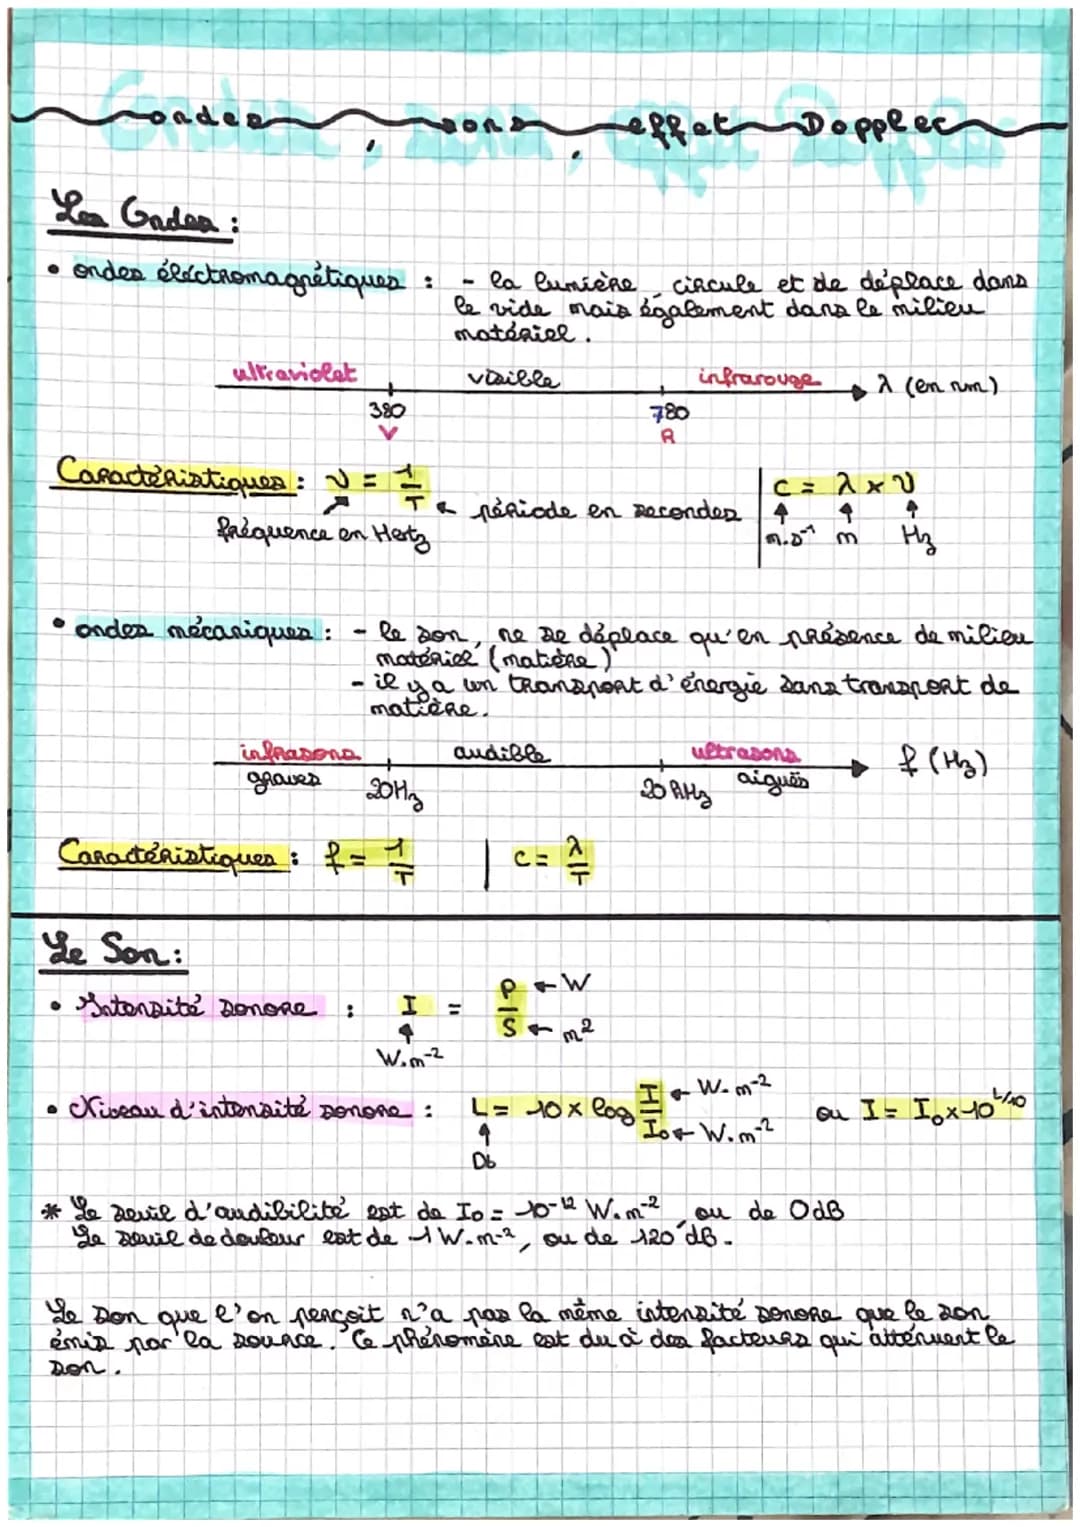 ondes, sons, effet Doppler
Les Ondes :
• ondes éléctromagnétiques : - la lumière circule et se déplace dans
le vide mais également dans le milieu
matériel.
ultraviolet visible infrarouge λ (en nm)
380 780
V R
Caractéristiques : ν = 1/T période en secondes | c = λ × ν
fréquence en Hertz m.s⁻¹ m Hz
• ondes mécaniques : - le son, ne se déplace qu'en présence de milieu
matériel (matière)
- il y a un transport d'énergie sans transport de
matière.
infrasons audible ultrasons f (Hz)
graves 20Hz 20 kHz aiguës
Caractéristiques : f = 1/T | c = λ/T
Le Son :
• Intensité sonore : I = P/S ← W ← m²
W.m⁻²
• Niveau d'intensité sonore : L = 10 × log I/I₀ ← W.m⁻² ← W.m⁻² ou I = I₀×10^L/10
Db
* Le seuil d'audibilité est de I₀ = 10⁻¹² W.m⁻², ou de 0dB
Le seuil de douleur est de 1 W.m⁻², ou de 120 dB.
Le son que l'on perçoit n'a pas la même intensité sonore que le son
émis par la source. Ce phénomène est du à des facteurs qui atténuent le
son.